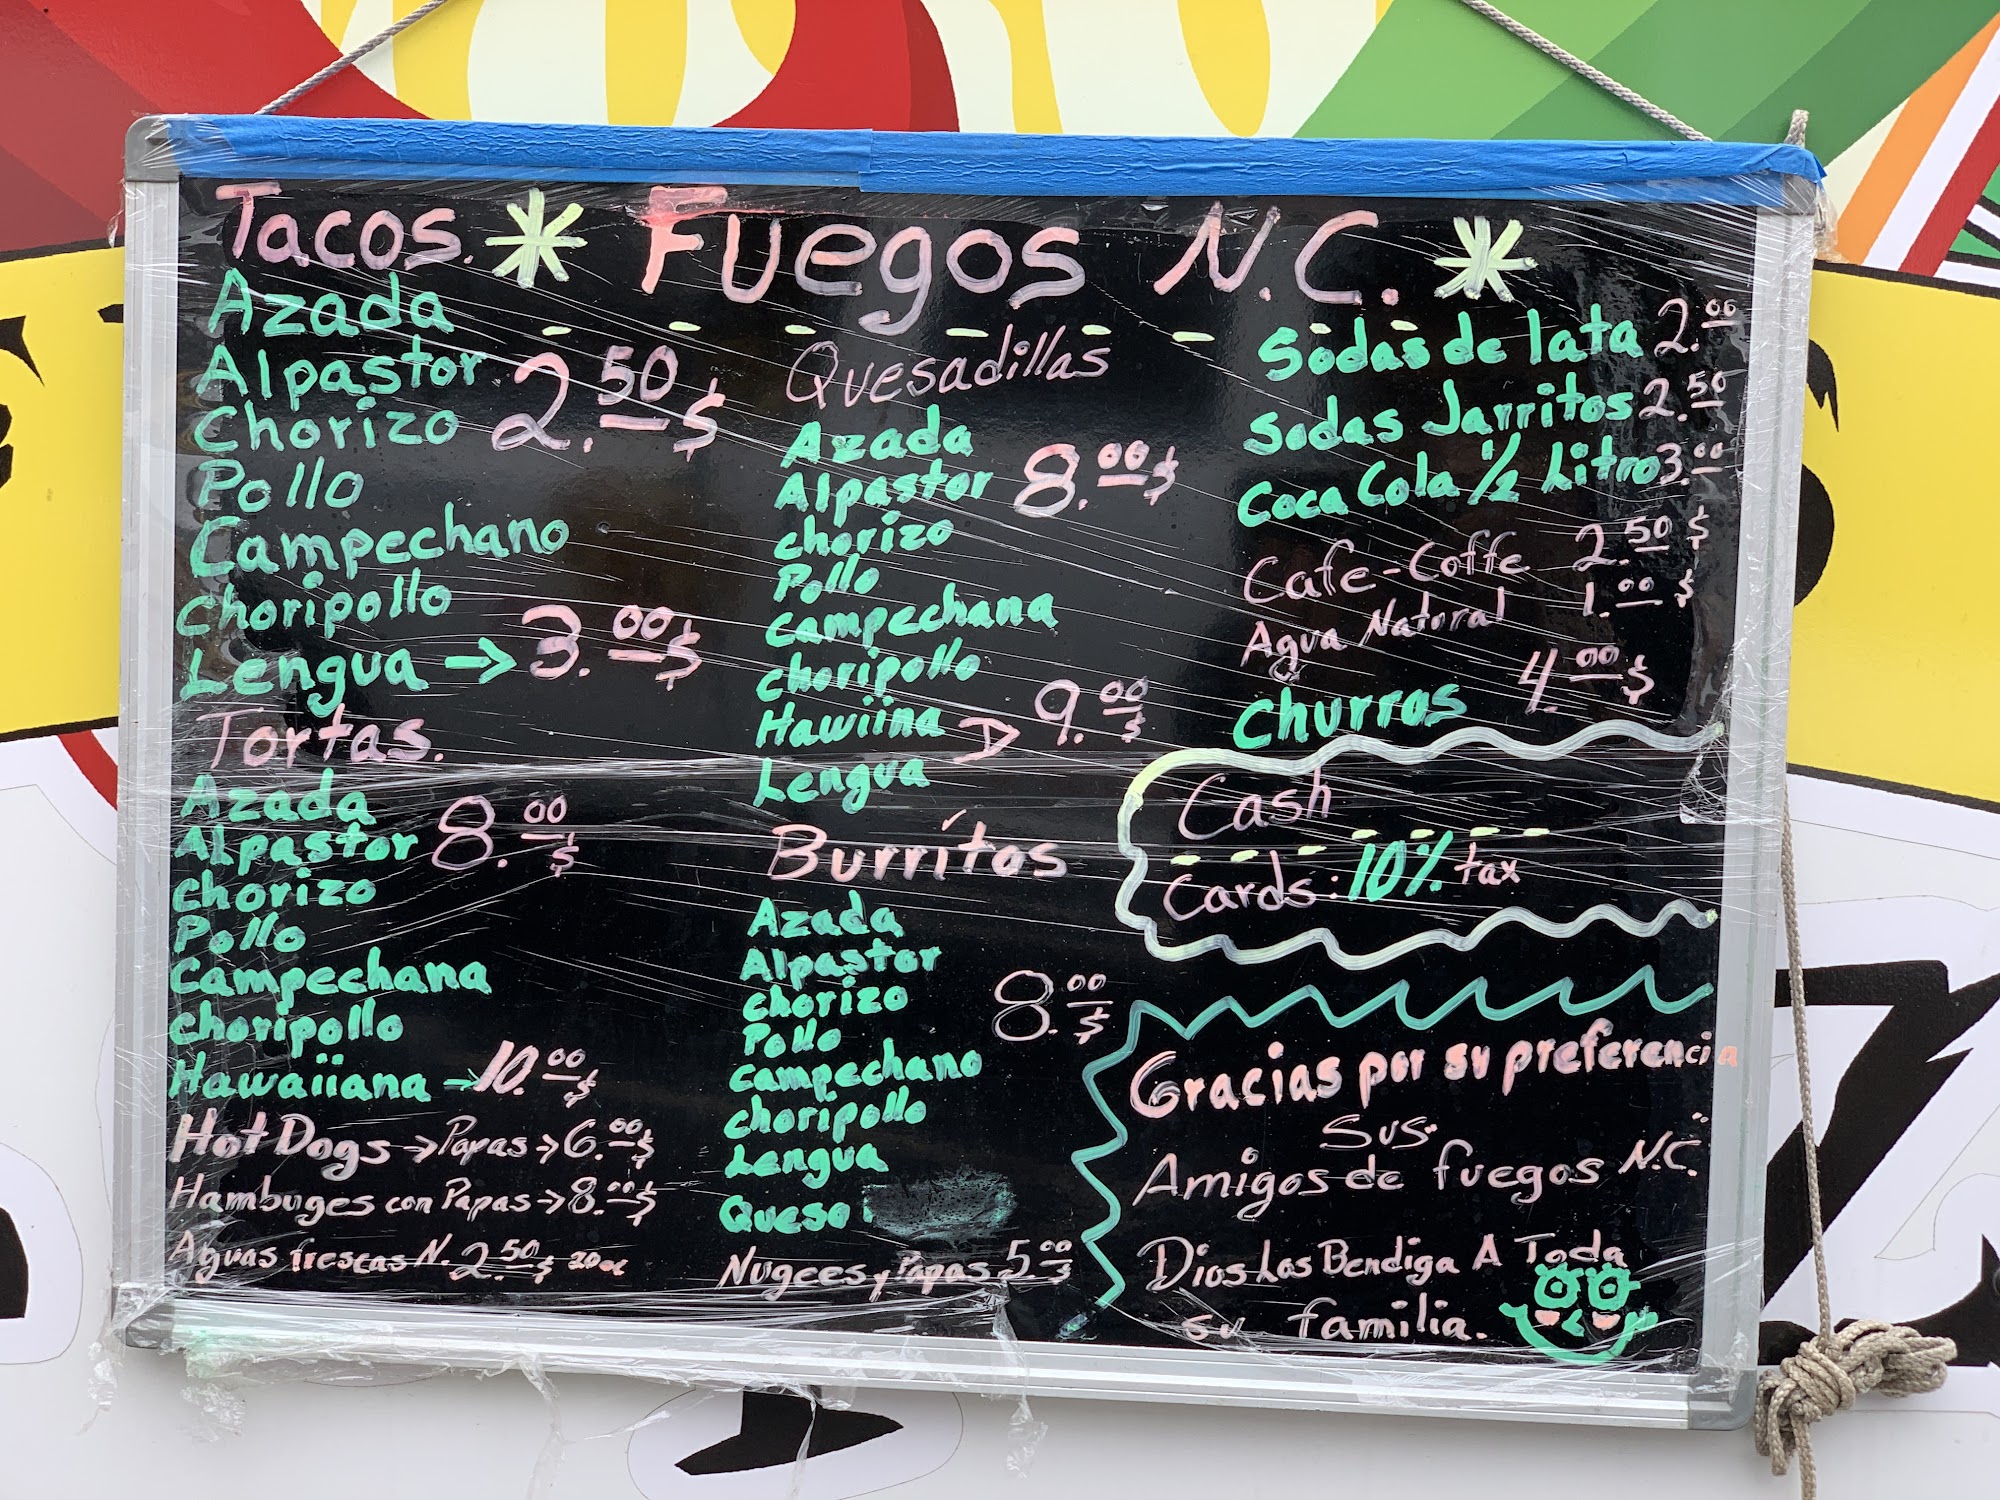 Tacos. * Fuegos N.C. *
Azada
Alpastor 2.50$
Chorizo
Pollo
Campechano
Choripollo
Lengua → 3.00$
Tortas.
Azada
Alpastor 8.00$
Chorizo
Pollo
Campechana
Choripollo
Hawaiiana → 10.00$
Hot Dogs → Papas → 6.00$
Hambuges con Papas → 8.00$
Aguas frescas N. 2.50$ 20oz
Quesadillas
Azada
Alpastor 8.00$
Chorizo
Pollo
Campechana
Choripollo
Hawiina 9.00$
Lengua
Burritos
Azada
Alpastor
Chorizo 8.00$
Pollo
Campechano
Choripollo
Lengua
Queso
Nugees y Papas 5.00$
Sodas de lata 2.00
Sodas Jarritos 2.50
Coca Cola 1/2 Litro 3.00
Cafe-Coffe 2.50$
Agua Natural 1.00$
Churros 4.00$
Cash
Cards: 10% tax
Gracias por su preferencia
Sus
Amigos de fuegos N.C.
Dios Los Bendiga A Toda
su familia.